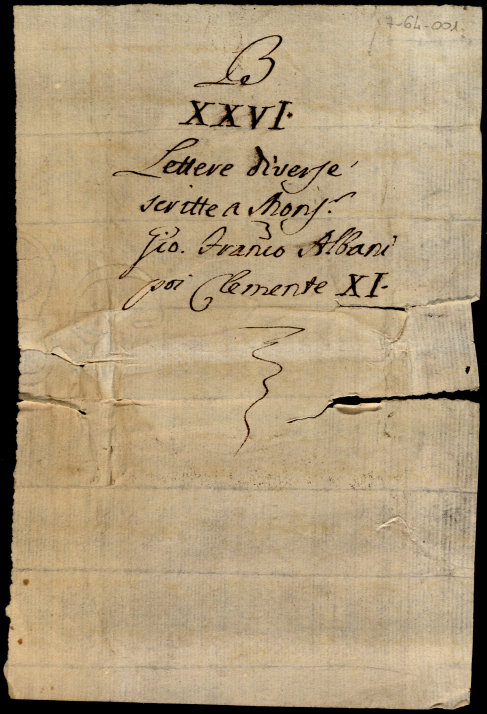 7-64-001.
B
XXVI.
Lettere diverse
scritte a Monsr.
Gio. Franco Albani
poi Clemente XI.